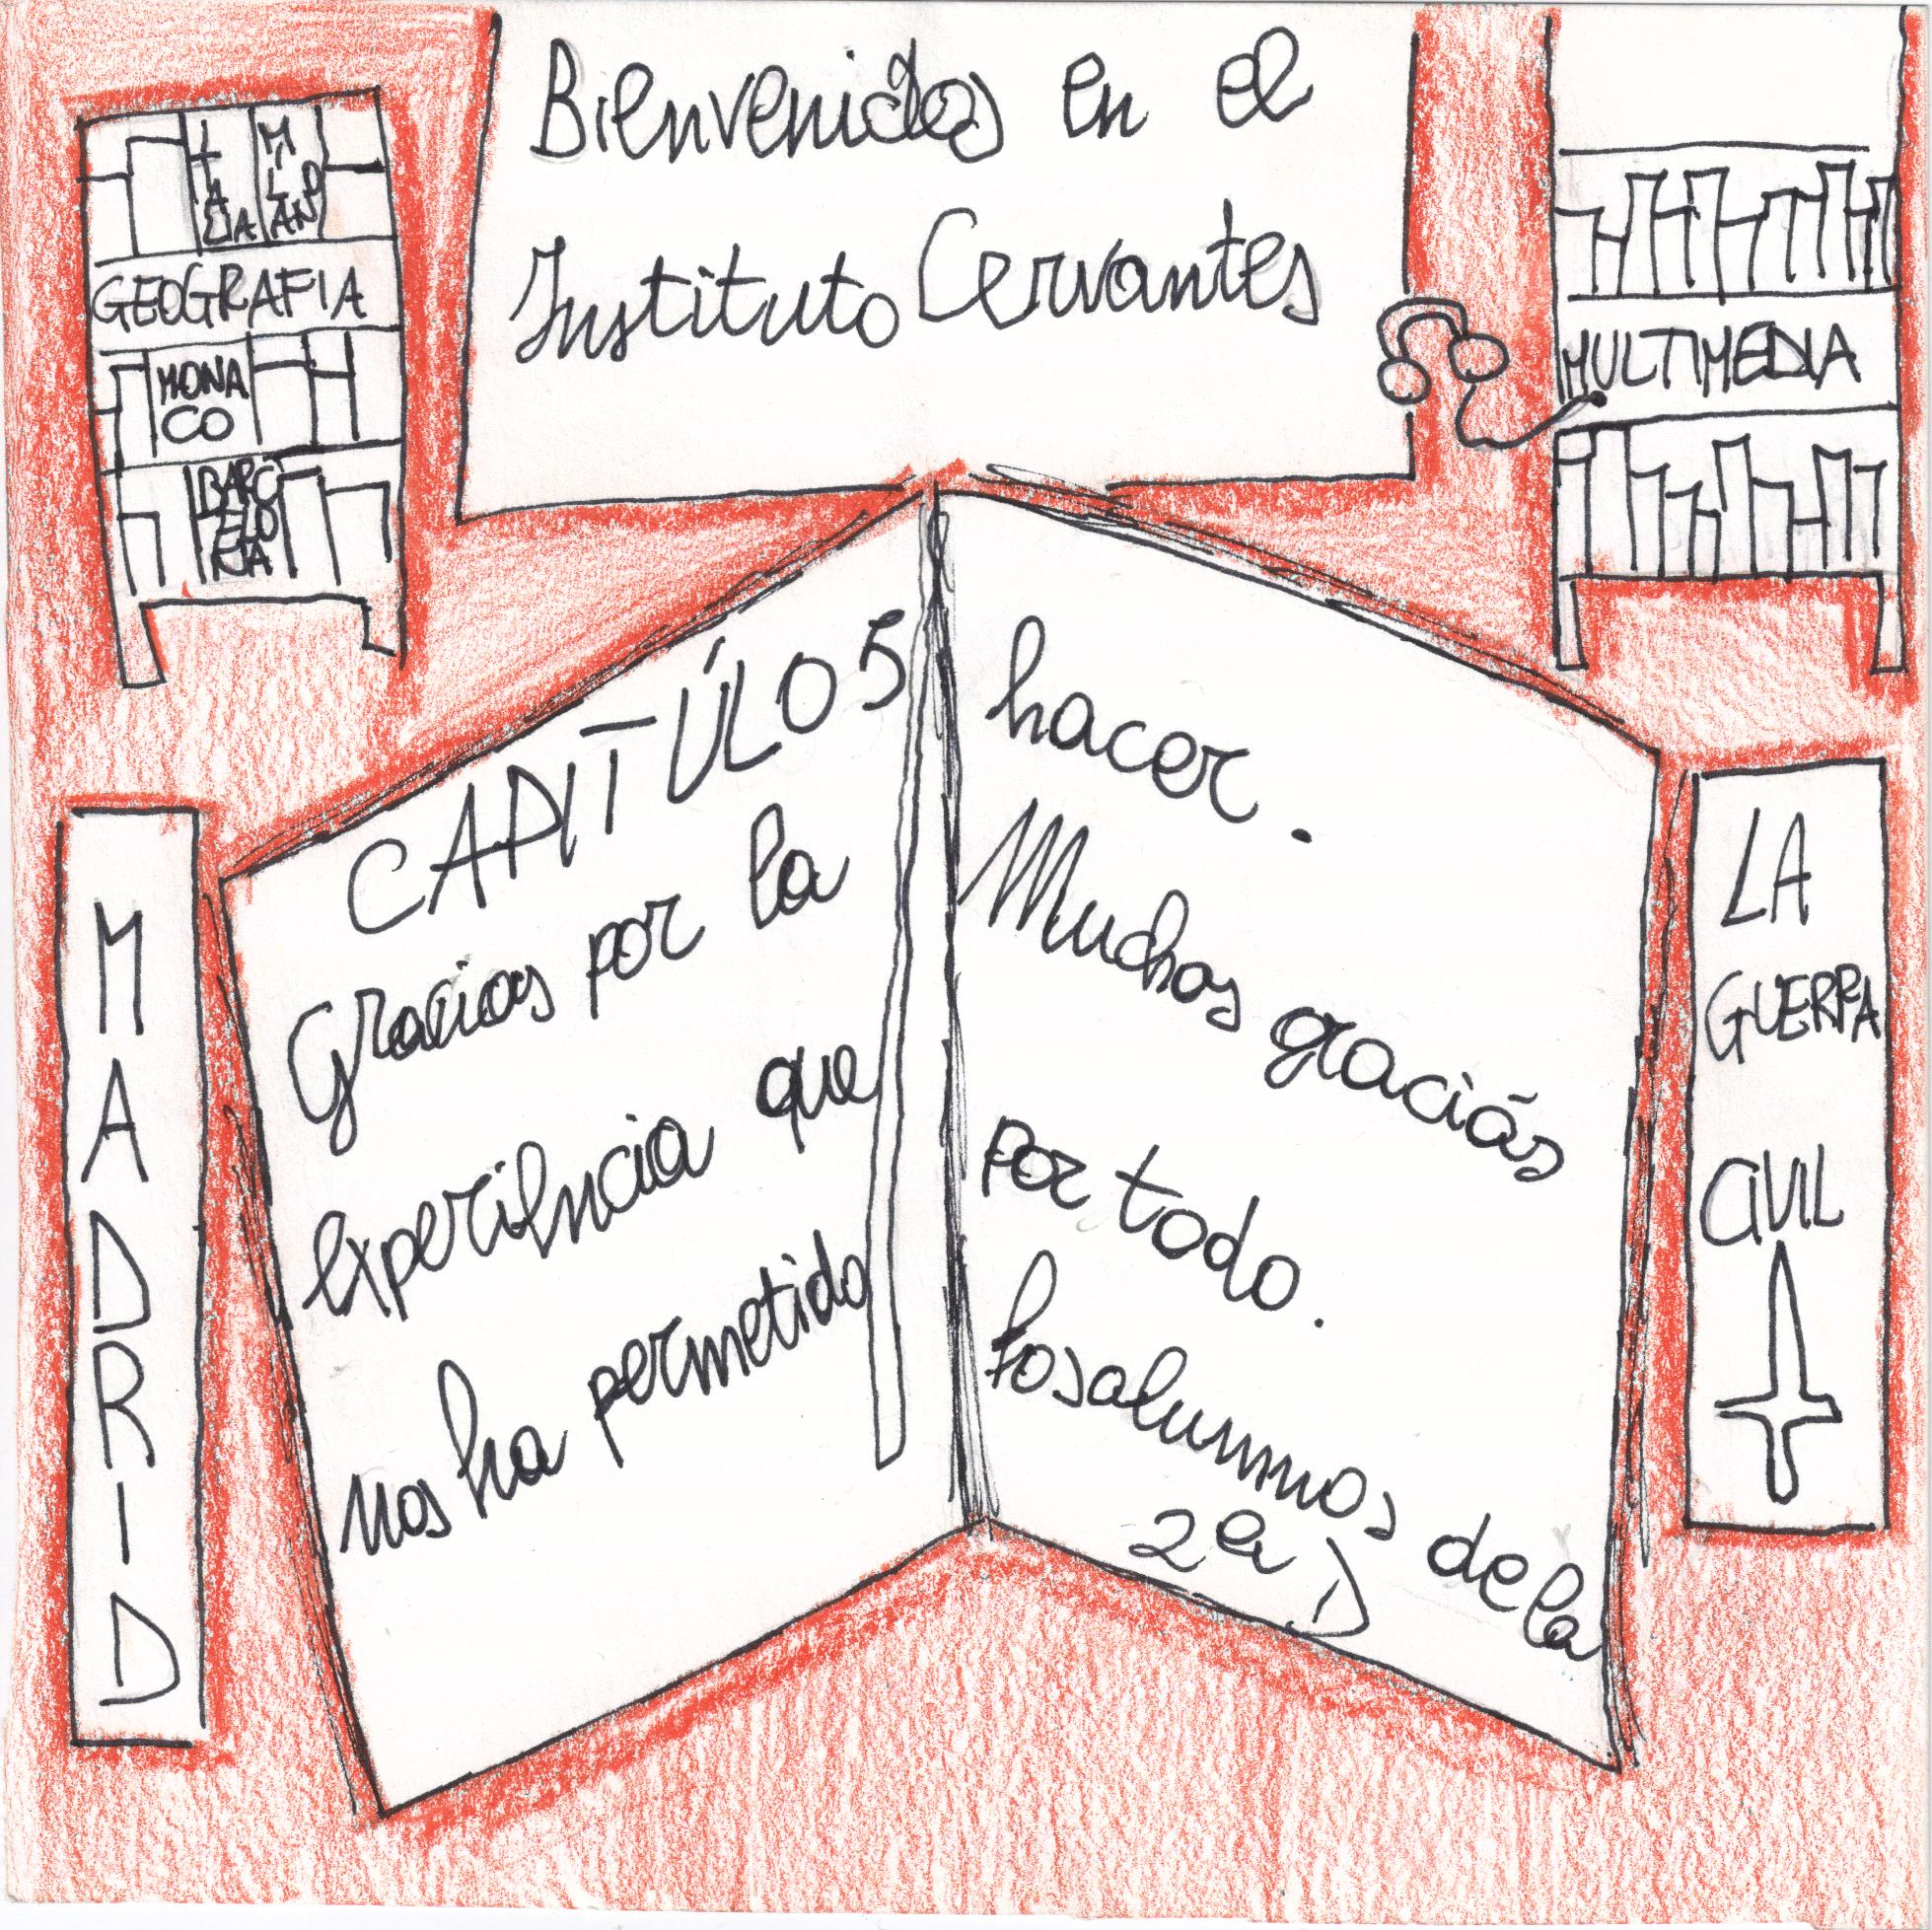 Bienvenidos en el
Instituto Cervantes
ITALIA
MILANO
GEOGRAFIA
MONA
CO
BARC
ELO
NA
MULTIMEDIA
CAPITÚLO 5
Gracias por la
experiencia que
nos ha permetido
hacer.
Muchas graciás
por todo.
Los alumnos de la
2ª D
MADRID
LA
GUERRA
CIVIL